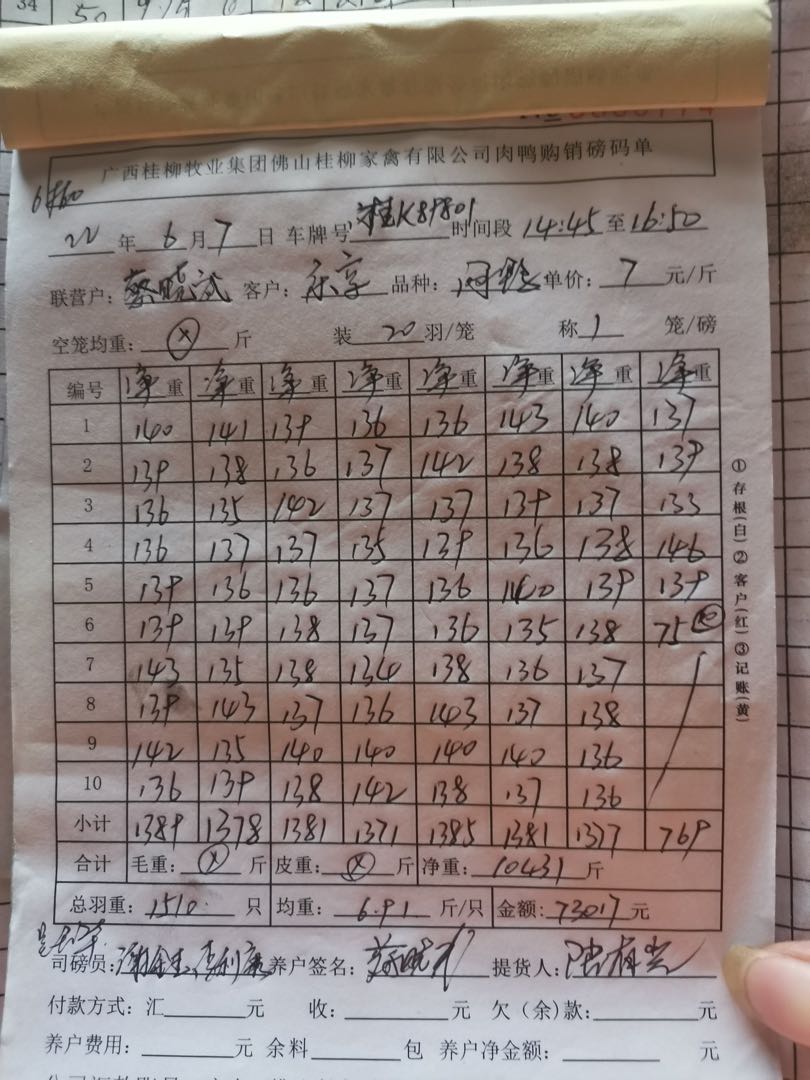 34 50
广西桂柳牧业集团佛山桂柳家禽有限公司肉鸭购销磅码单
22 年 6 月 7 日 车牌号 桂K89801 时间段 14:45 至 16:50
联营户: 蔡晓武 客户: 东享 品种: 单价: 7 元/斤
空笼均重: ⊗ 斤 装 20 羽/笼 称 1 笼/磅
编号 净重 净重 净重 净重 净重 净重 净重 净重
1 140 141 139 136 136 143 140 137
2 139 138 136 137 142 138 138 139
3 136 135 142 137 137 139 137 133
4 136 137 137 135 139 136 138 146
5 139 136 136 137 136 140 139 139
6 139 139 138 137 136 135 138 75 ⑩
7 143 135 138 134 138 136 137
8 139 143 137 136 143 137 138
9 142 135 140 140 140 140 136
10 136 139 138 142 138 137 136
小计 1389 1378 1381 1371 1385 1381 1377 769
合计 毛重: ⊗ 斤 皮重: ⊗ 斤 净重: 10431 斤
总羽重: 1510 只 均重: 6.91 斤/只 金额: 73017 元
司磅员: 养户签名: 蔡晓武 提货人:
付款方式: 汇 元 收: 元 欠(余)款: 元
养户费用: 元 余料 包 养户净金额: 元
①存根(白)②客户(红)③记账(黄)